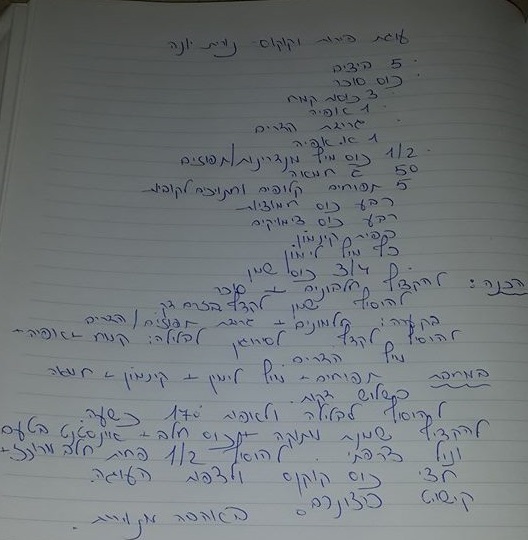 עוגת פירות וקוקוס- נורית יונה
5 ביצים
כוס סוכר
3 כוסות קמח
1 אפיה
גרידת הדרים
1 א. אפיה
1/2 כוס מיץ מנדרינות/תפוזים
50 ג חמאה
5 תפוחים קלופים וחתוכים לקוביות
רבע כוס חמוציות
רבע כוס צימוקים
כפית קינמון
כף מיץ לימון
3/4 כוס שמן
הכנה: להקציף חלבונים + סוכר
להוסיף שמן להקציף בזרם דק
בקערה: חלמונים + גרידת תפוזים/הדרים
להוסיף לקצף. לסירוגין לבלילה: קמח +אפיה+
מיץ הדרים
במחבת תפוחים+ מיץ לימון + קינמון + חמאה
כשלוש דקות.
להוסיף לבלילה ולאפות 170° כשעה
להקציף שמנת מתוקה + כוס חלב + אינסטנט בטעם
וניל צרפתי. להוסיף 1/2 פחית חלב מרוכז+
חצי כוס קוקוס ולצפות העוגה.
קישוט כרצונכם. באהבה מנורית.